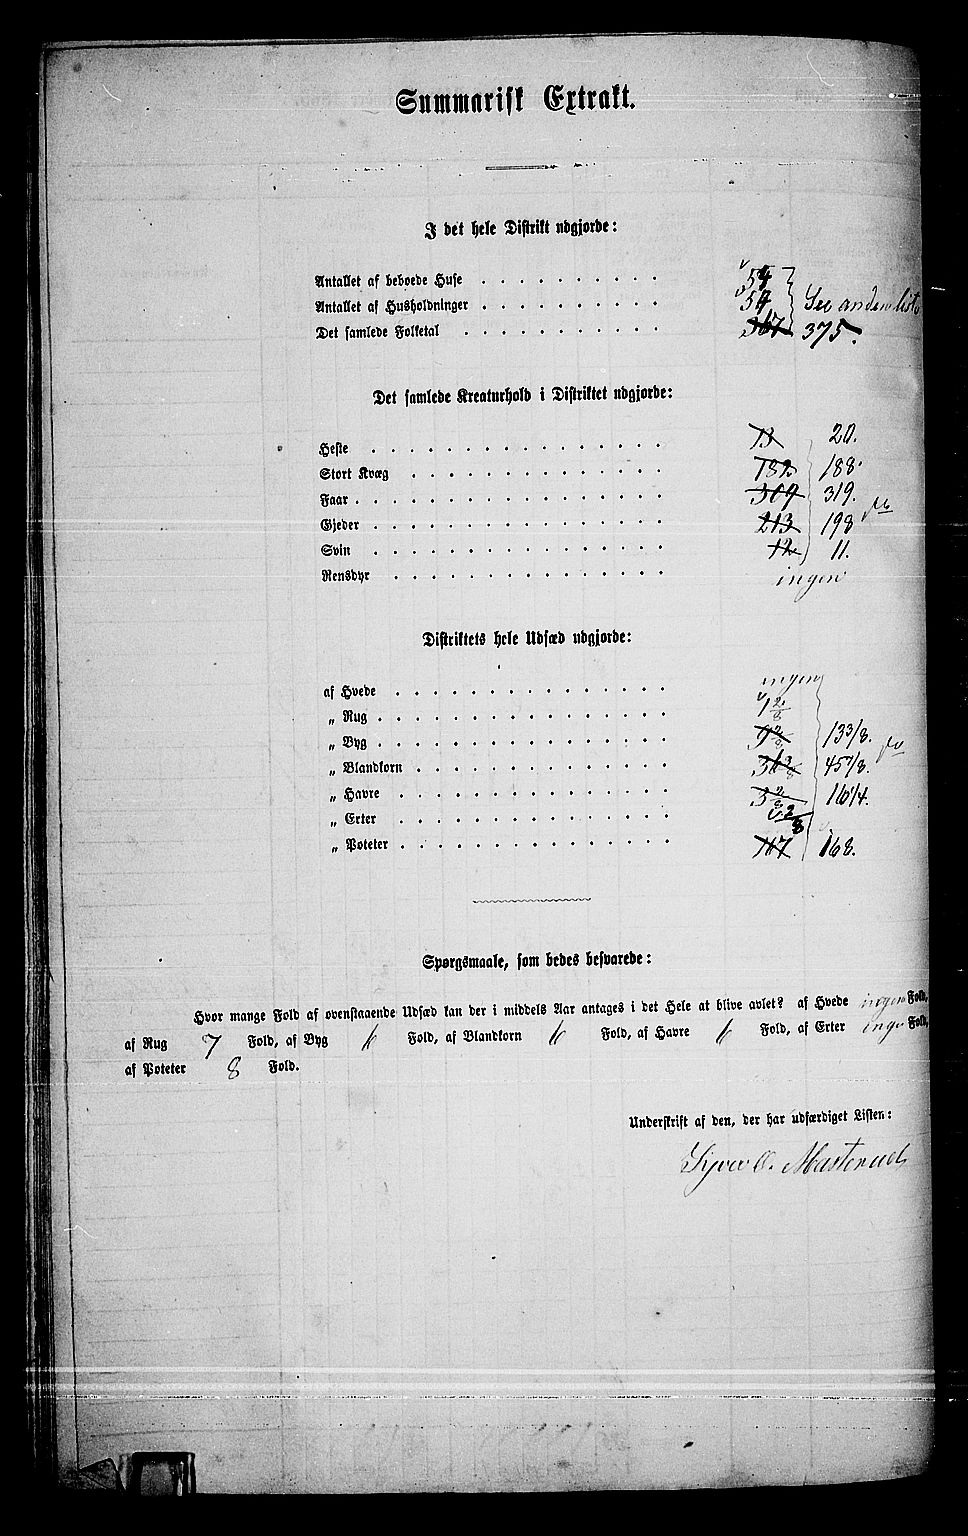 Summarisk Extrakt.
I det hele Distrikt udgjorde:
Antallet af beboede Huse 54
Antallet af Husholdninger 54 See anden liste
Det samlede Folketal 367 375.
Det samlede Kreaturhold i Distriktet udgjorde:
Heste 13 20.
Stort Kvæg 189. 188.
Faar 309 319.
Gjeder 213 198
Svin 12 11.
Rensdyr ingen
Distriktets hele Udsæd udgjorde:
af Hvede ingen
„ Rug 1 2/8
„ Byg 9 2/8 13 3/8.
„ Blandkorn 36 3/8 45 7/8.
„ Havre 3 2/8 16 1/4.
„ Erter 2/8
„ Poteter 167 168.
Spørgsmaale, som bedes besvarede:
Hvor mange Fold af ovenstaaende Udsæd kan der i middels Aar antages i det Hele at blive avlet? af Hvede ingen Fold,
af Rug 7 Fold, af Byg 6 Fold, af Blandkorn 6 Fold, af Havre 6 Fold, af Erter inge Fold,
af Poteter 8 Fold.
Underskrift af den, der har udfærdiget Listen:
Syver O. Masterud